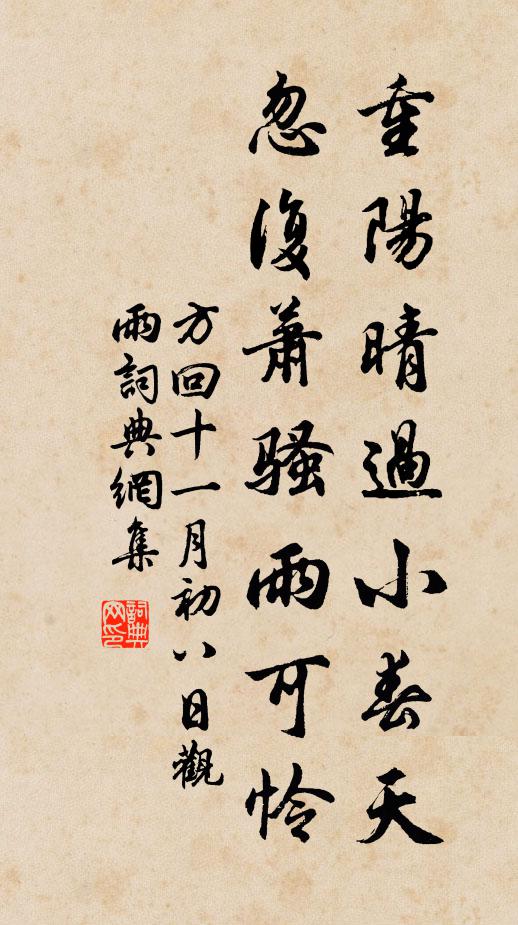 重陽晴過小春天
忽復蕭騷雨可憐
方回十一月初八日觀
雨詞典網集
詞典网印